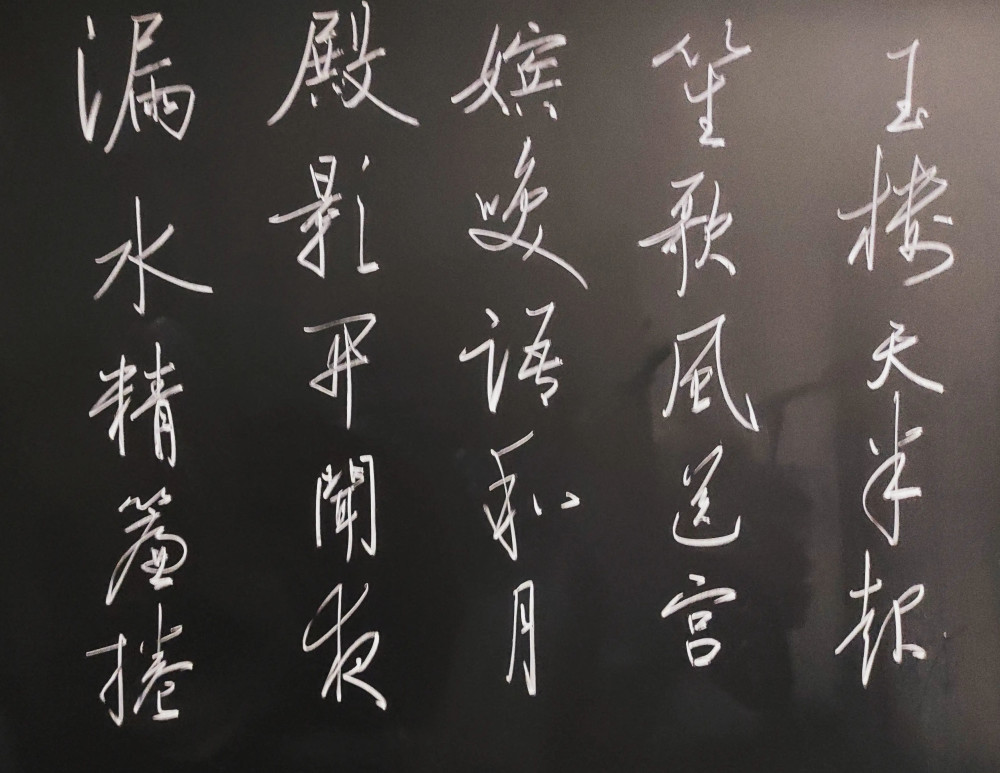 玉樓天半起
笙歌風送宫
嬪咲語和月
殿影开聞夜
漏水精簾捲